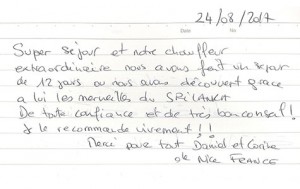 24/08/2017
Date No
Super séjour et notre chauffeur
extraordinaire nous avons fait un séjour
de 12 jours ou nous avons découvert grace
a lui les merveilles du SRILANKA
De toute confiance et de très bon conseil!
Je le recommande vivement!!
Merci pour tout Daniel et Corine
de Nice FRANCE